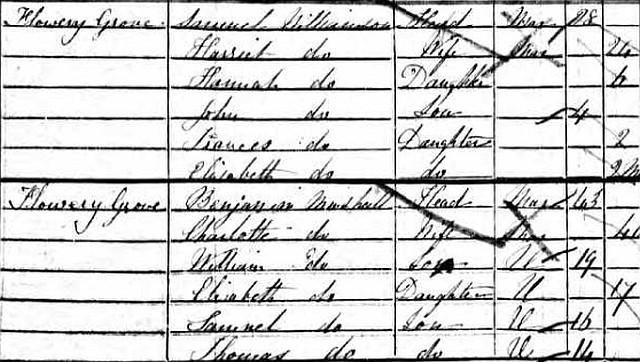 Flowery Grove Samuel Williamson Head Mar 28
Harriet do Wife Mar 26
Hannah do Daughter 6
John do Son 4
Frances do Daughter 2
Elizabeth do do 9 M
Flowery Grove Benjamin Marshall Head Mar 43
Charlotte do Wife Mar
William do Son U 19
Elizabeth do Daughter U 17
Samuel do Son U 16
Thomas do do U 14